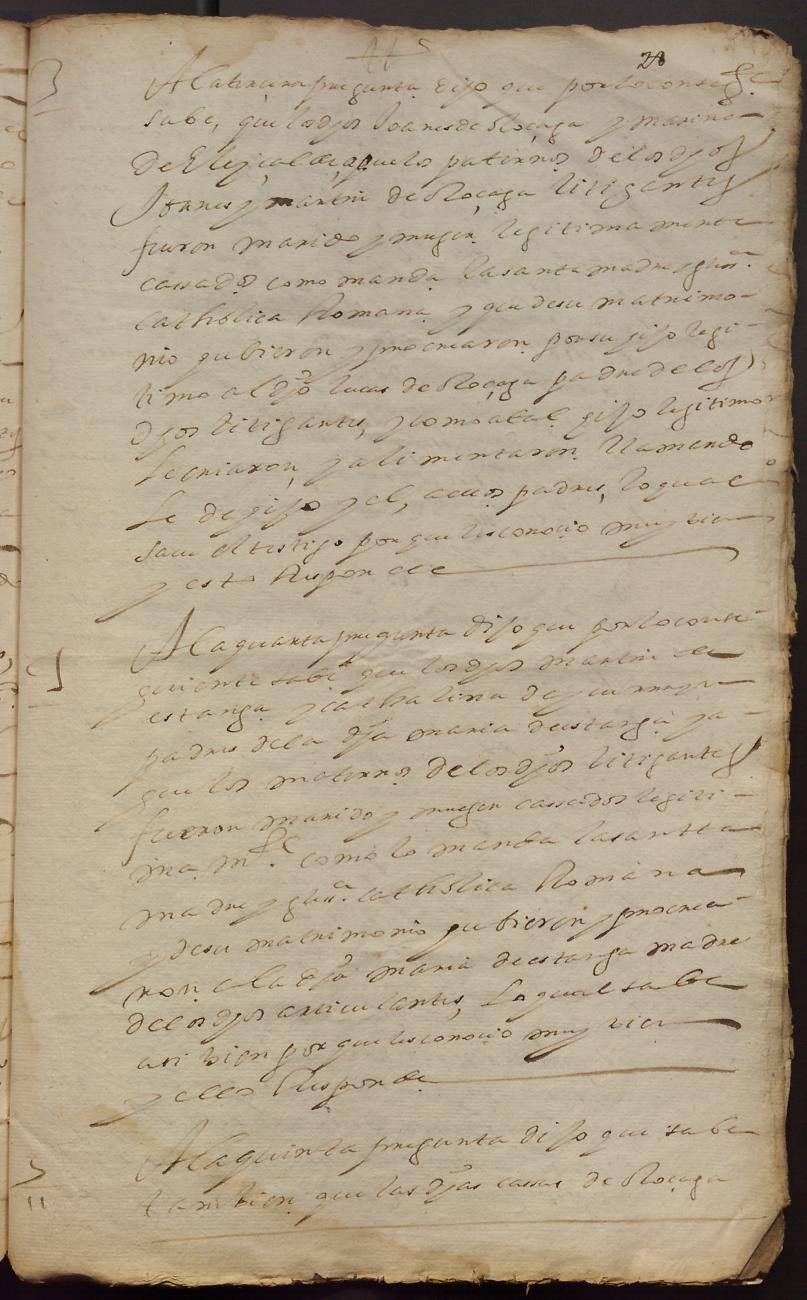 28
3
A la tercera pregunta dijo que por lo conte
save, que los dhos Joanes de Roçaga y Marina
de Eleiçalde, aguelos paternos de los dhos
Joanes y martin de Roçaga litigantes
fueron marido y muger legitimamente
cassados como manda la santa madre yglesia
catholica Romana y que de su matrimo-
nio hubieron y procrearon por su hijo legi-
timo al dho lucas de Roçaga padre de los
dhos litigantes, y como a tal hijo legitimo
le criaron, y alimentaron llamando
le de hijo y el, a ellos padres, lo qual
save el testigo porque les conocio muy bien
y esto Responde
4
A la quarta pregunta dijo que por lo conte-
niente sabe que los dhos martin de
estanga y cathalina de
padres de la dha maria de estanga, y a-
guelos maternos de los dhos litigantes
fueron marido y muger cassados legiti-
mamte. como lo manda la santta
madre yglia. catholica Romana
y de su matrimonio hubieron y procrea-
ron a la dha maria de estanga madre
de los dhos articulantes, Lo qual sabe
assi bien porque les conocio muy bien
y ello Responde
5
A la quinta pregunta dijo que sabe
tambien que las dhas cassas de Roçaga